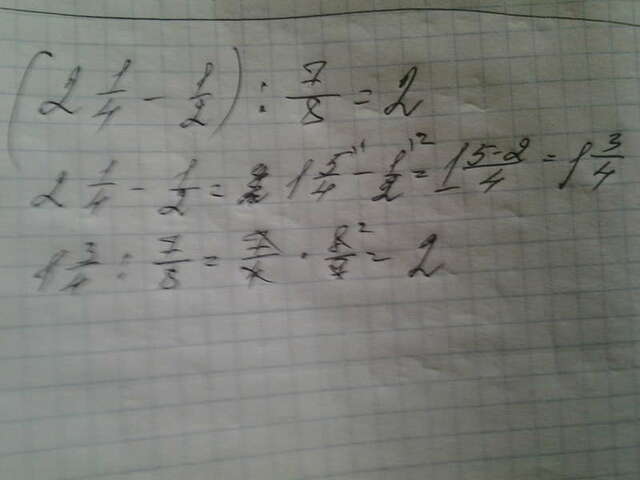 (2 1/4 - 1/2) : 7/8 = 2
2 1/4 - 1/2 = 1 5/4 - 1/2 = 1 5-2/4 = 1 3/4
1 3/4 : 7/8 = 7/4 · 8/7 = 2